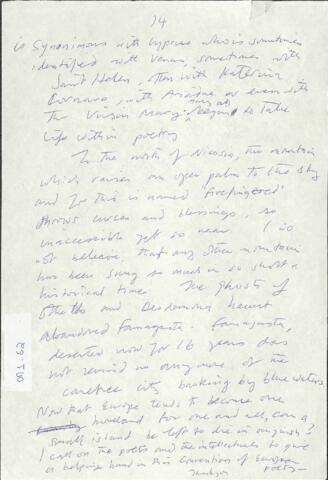 14
is synonimous with Cyprus who is sometimes
identified with Venus, sometimes with
Saint Helen, often with Katerina
Cornaro, with Ariadne or even with
the Virgin Mary to take
life within poetry
To the north of Nicosia, the mountain
which raises an open palm to the sky
and for this is named 'fivefingered'
throws curses and blessings, so
inaccessible yet so near. I do
not believe, that any other mountain
has been sung so much in so short a
historical time. The ghosts of
Othello and Desdemona haunt
abandoned Famagusta. Famagusta,
deserted now for 16 years does
not remind us anymore of the
carefree city basking by blue waters
Now that Europe tends to become one
homeland for one and all, can a
small island be left to die in anguish?
I call on the poets and the intellectuals to give
a helping hand in this Convention of European
poets